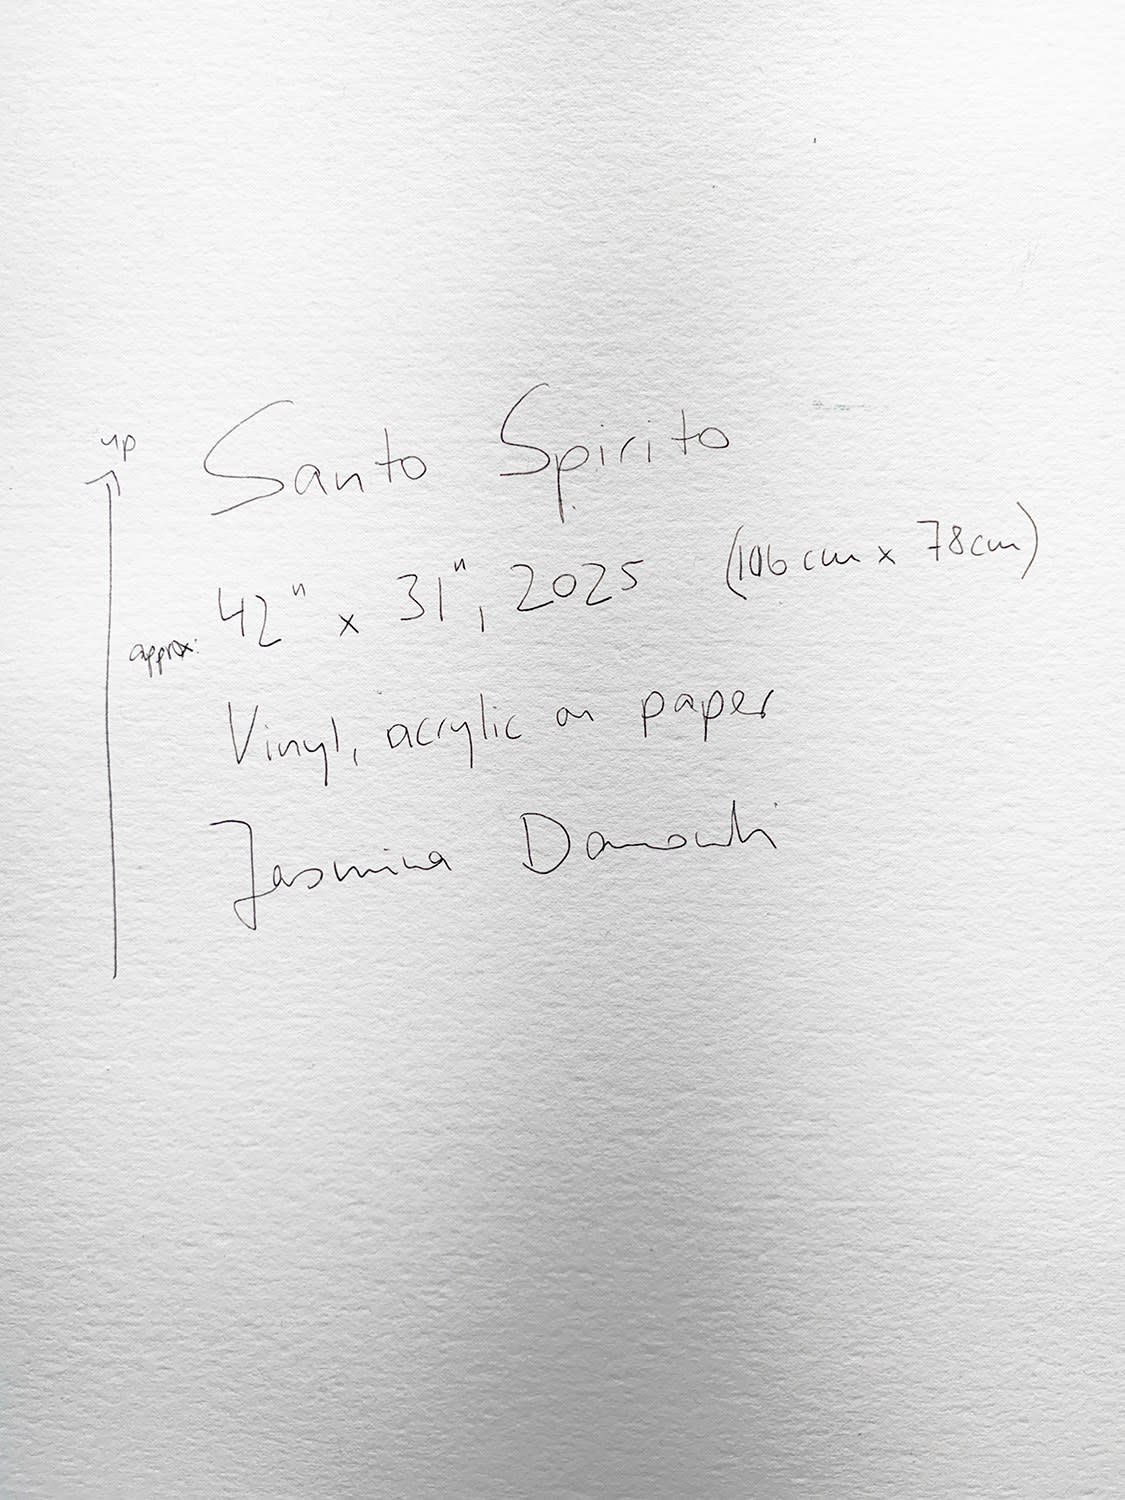 up
Santo Spirito
approx: 42" x 31", 2025 (106 cm x 78cm)
Vinyl, acrylic on paper
Jasmina Danowski